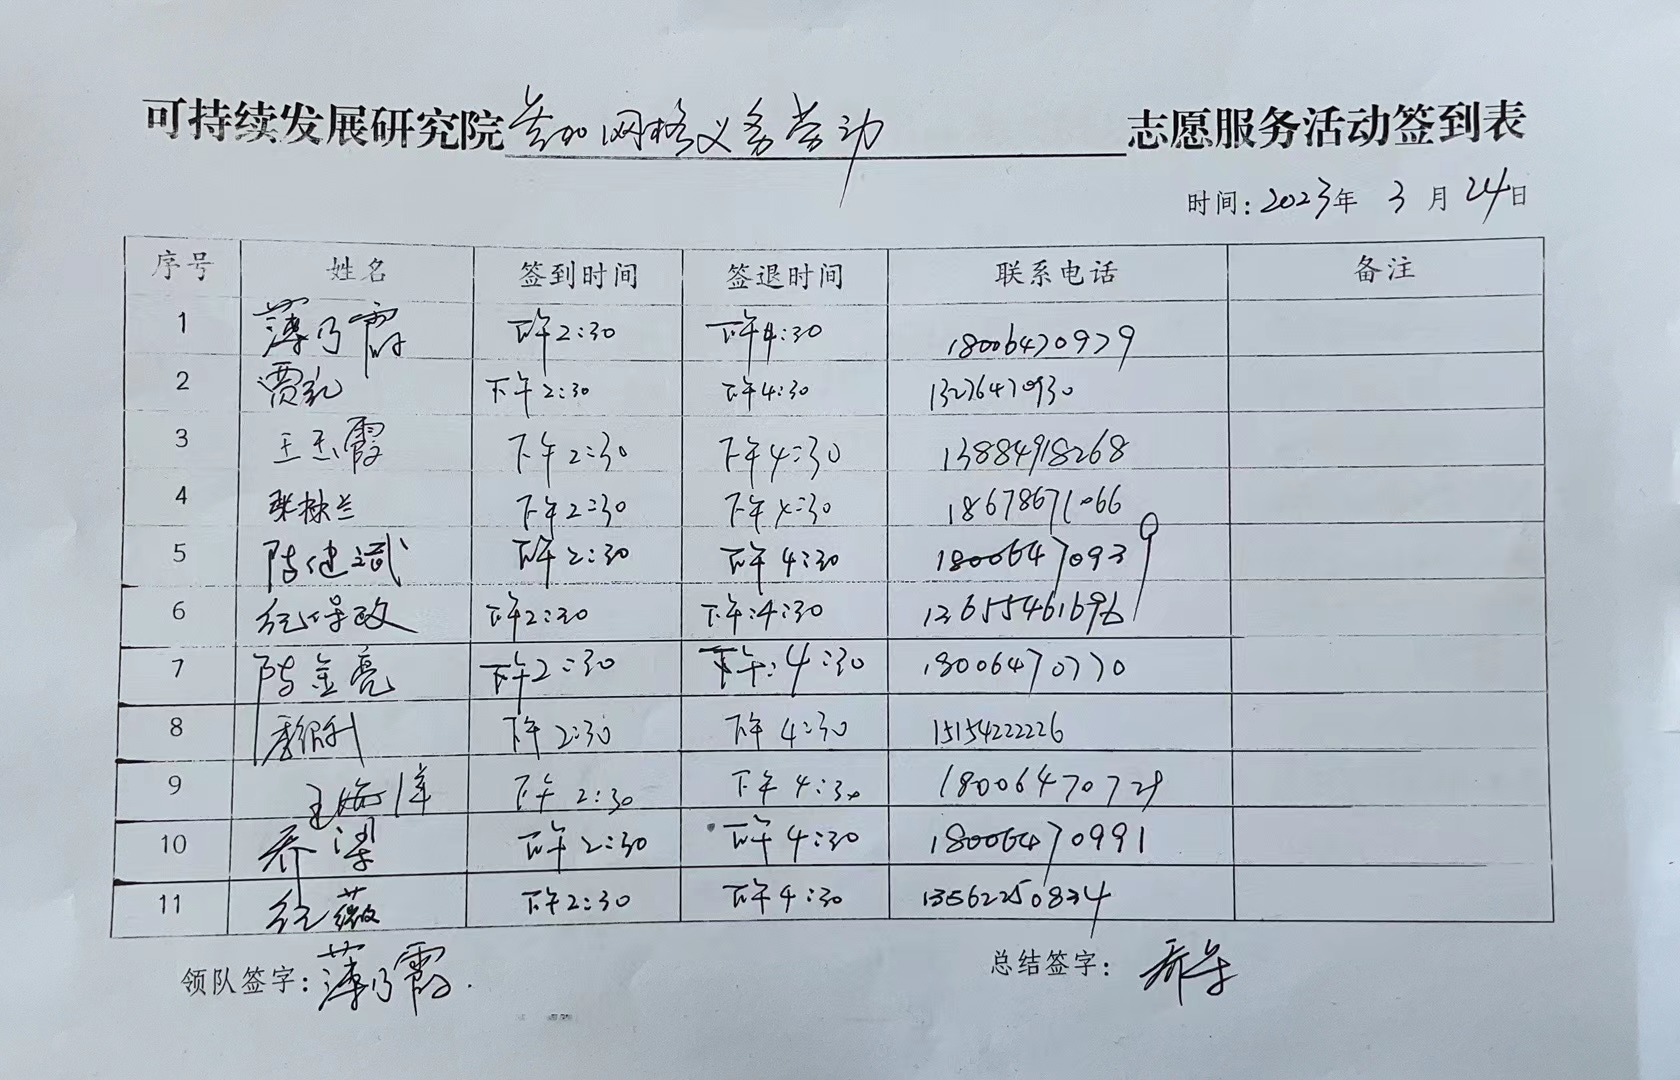 可持续发展研究院 参加网格义务劳动 志愿服务活动签到表
时间: 2023年 3月 24日
序号 姓名 签到时间 签退时间 联系电话 备注
1 薄乃霞 下午2:30 下午4:30 18006470979
2 贾乳 下午2:30 下午4:30 13276470930
3 王玉霞 下午2:30 下午4:30 13884918268
4 下午2:30 下午4:30 18678671066
5 陈建斌 下午2:30 下午4:30 18006470939
6 纪保政 下午2:30 下午:4:30 13655461696
7 陈金亮 下午2:30 下午:4:30 18006470770
8 下午2:30 下午4:30 15154222226
9 王海洋 下午2:30 下午4:30 18006470729
10 乔梁 下午2:30 下午4:30 18006470991
11 纪薇 下午2:30 下午4:30 13562250834
领队签字: 薄乃霞 总结签字: